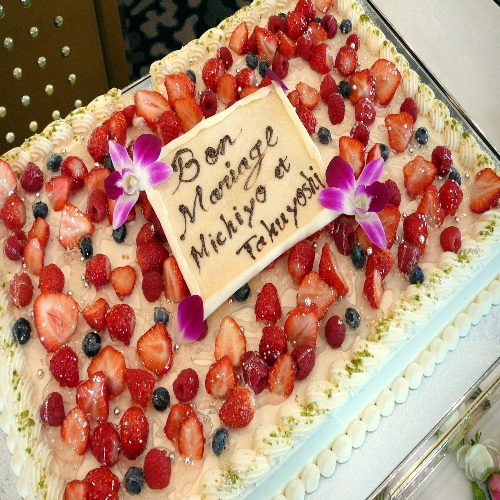 Bon
Mariage
Michiyo et
Takuyoshi